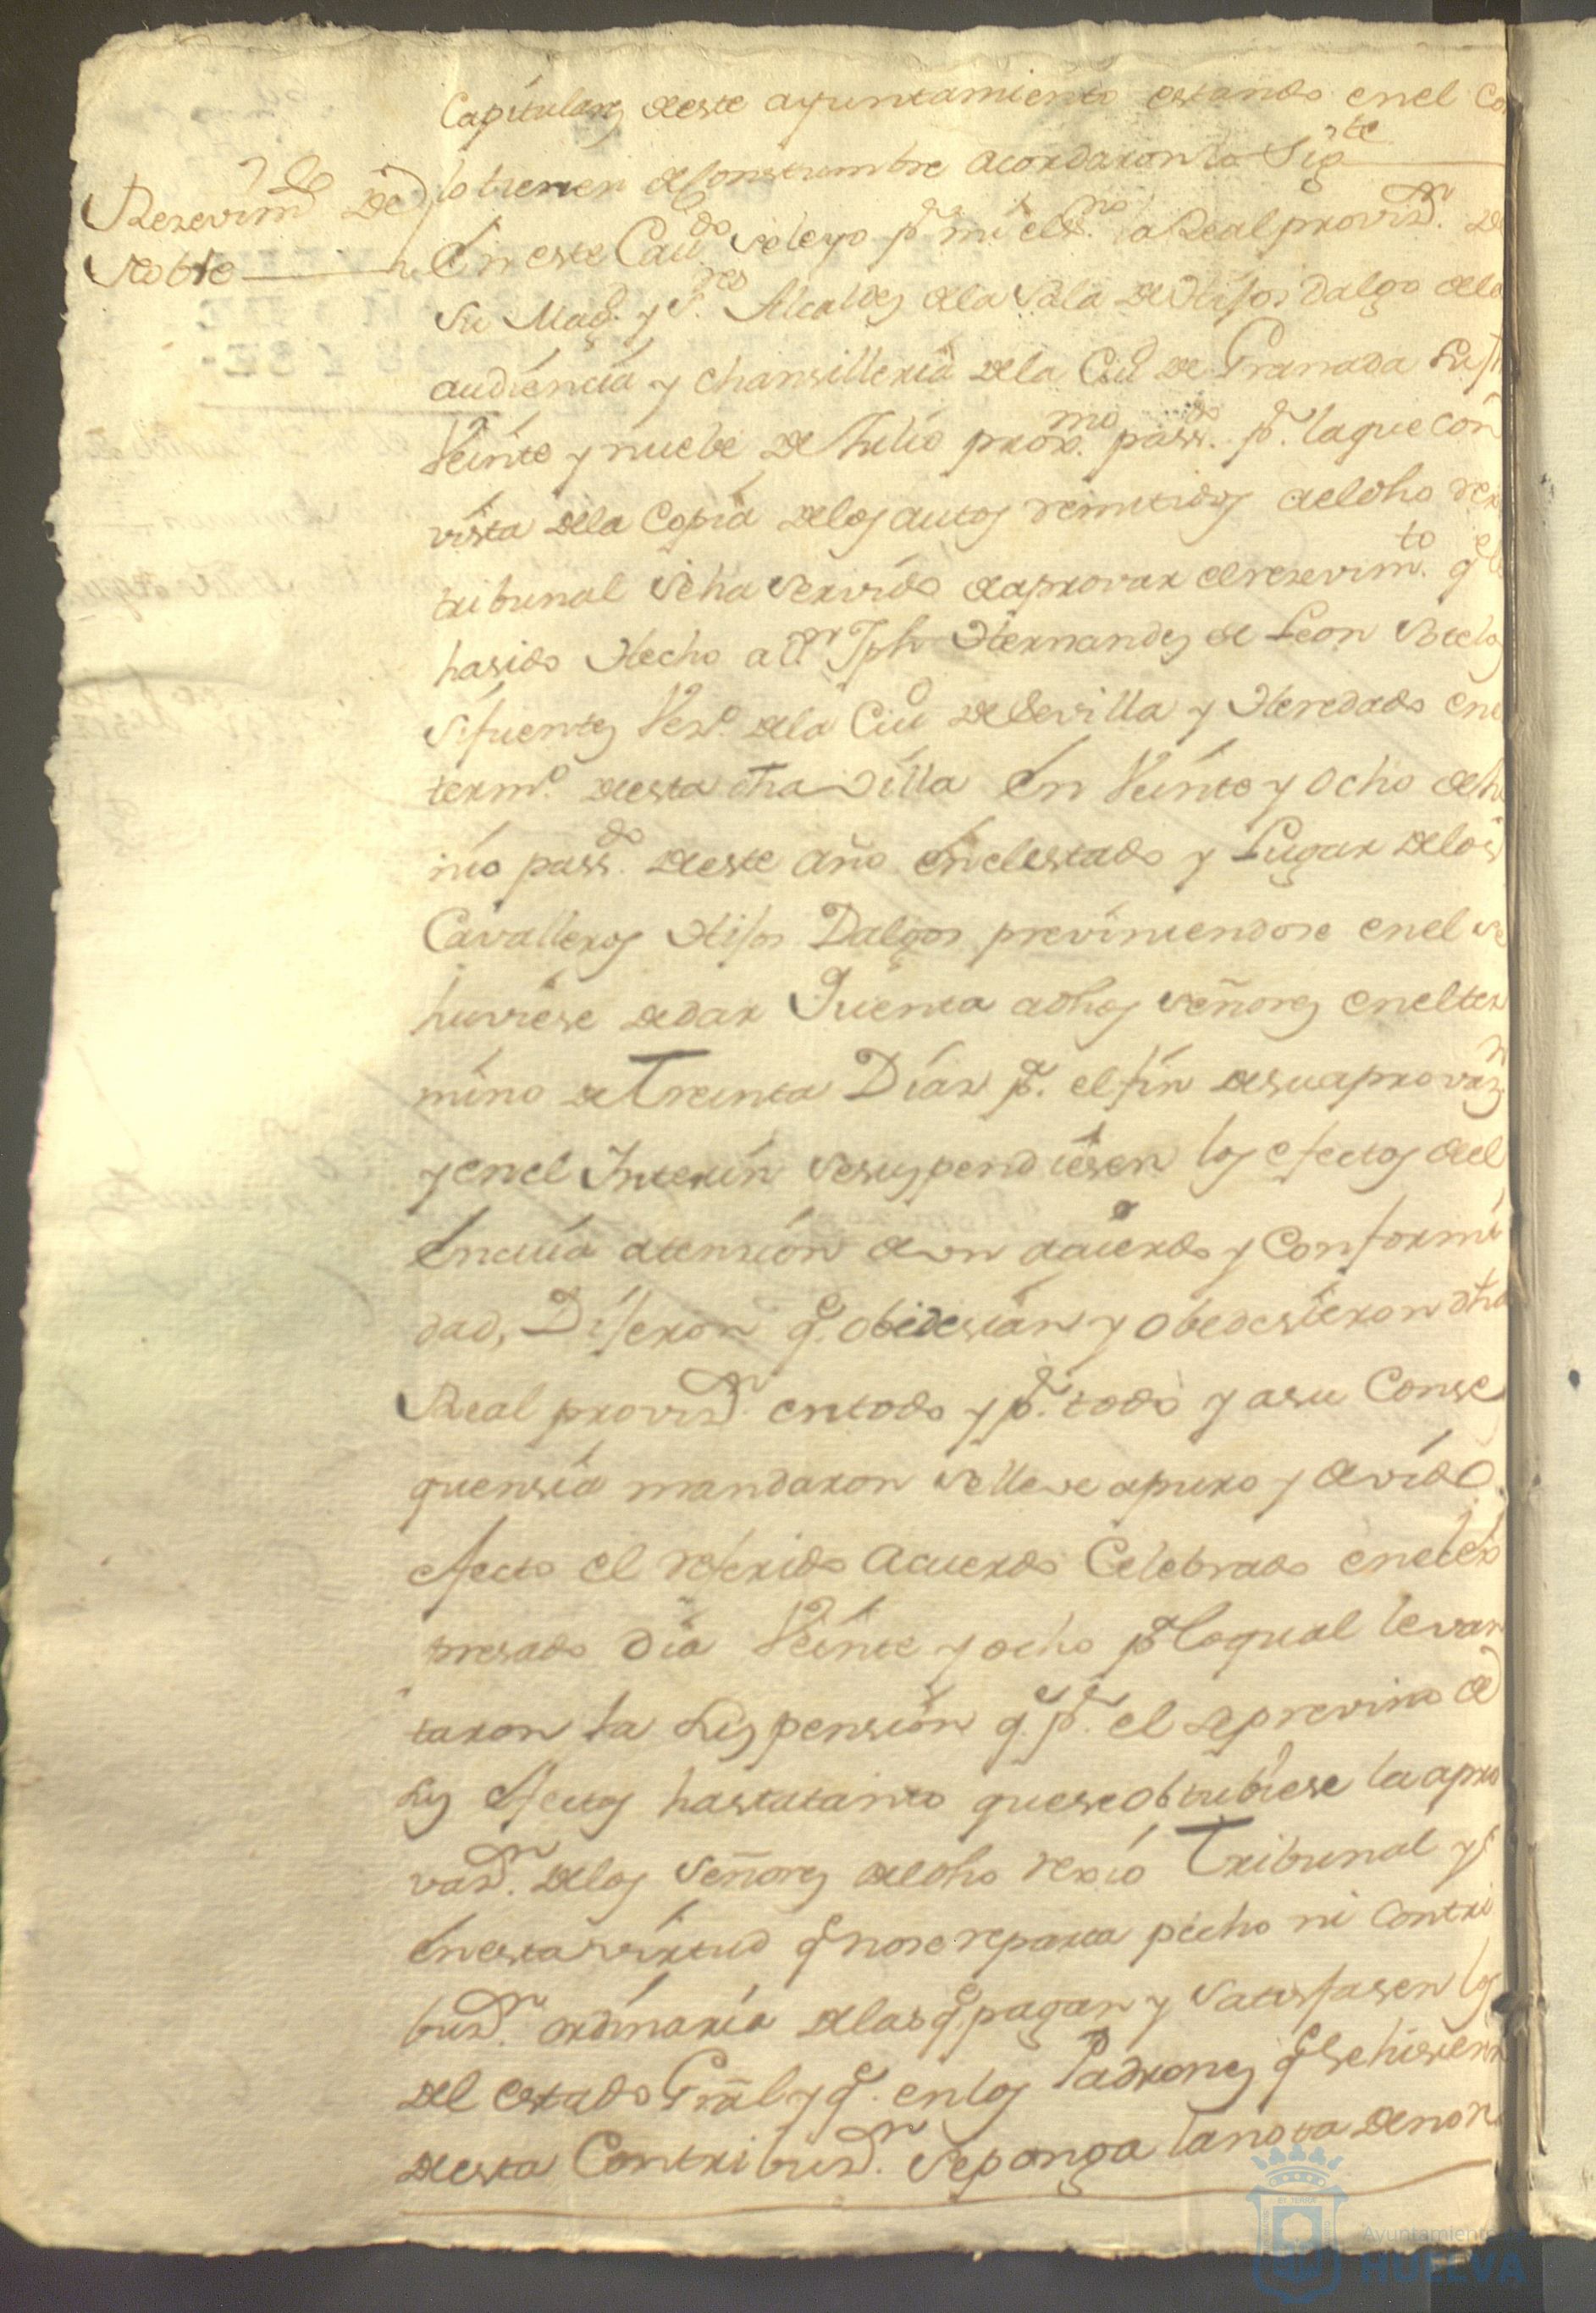 Capitulares deste ayuntamiento estando en el Co
lo tienen de constumbre acordaron lo Sigte
Resevimto de
Noble
En este Cavdo se leyo pr mi el Essno la Real provisn de
Su Magd y Sres Alcaldes de la Sala de Hijos Dalgo de la
audiencia y chansilleria de la Ciud de Granada su fh
Veinte y nuebe de Julio proxmo passdo pr la que con
vista de la Copia de los autos remitidos a el dho rex
tribunal se ha servido de aprovar el resevimto qe
ha sido Hecho a Dn Jph Hernandes de Leon
Sifuentes Veso de la Ciud de Sevilla y Heredado en e
termo de esta dha Villa En Veinte y Ocho de Ju
nio passdo de este año En el estado y Lugar de los
Cavalleros Hijos Dalgos previniendose en el se
huviese de dar Quenta a dhos Señores en el ter
mino de Treinta Dias pa el fin de su aprovazn
y en el Interin se suspendiesen los efectos de el
En cuia atension de un acuerdo y Conformi
dad, Dijeron qe obedesian y obedesieron dha
Real provisn en todo y pr todo y a su Conse
quensia mandaron se lleve a puro y devido
efecto el referido acuerdo Celebrado en el ex
presado dia Veinte y ocho pr lo qual levan
taron la suspension qe pr el se previno de
sus efectos hasta tanto que se obtubiese la apro
vasn de los Señores de dho rexio Tribunal y
En esta virtud qe no se reparta pecho ni Contri
busn ordinaria de las qe pagan y Satisfasen los
del estado Genrl y qe en los Padrones qe se hisieren
de esta Contribusn se ponga la nota de no
Ayuntamiento de
HUELVA